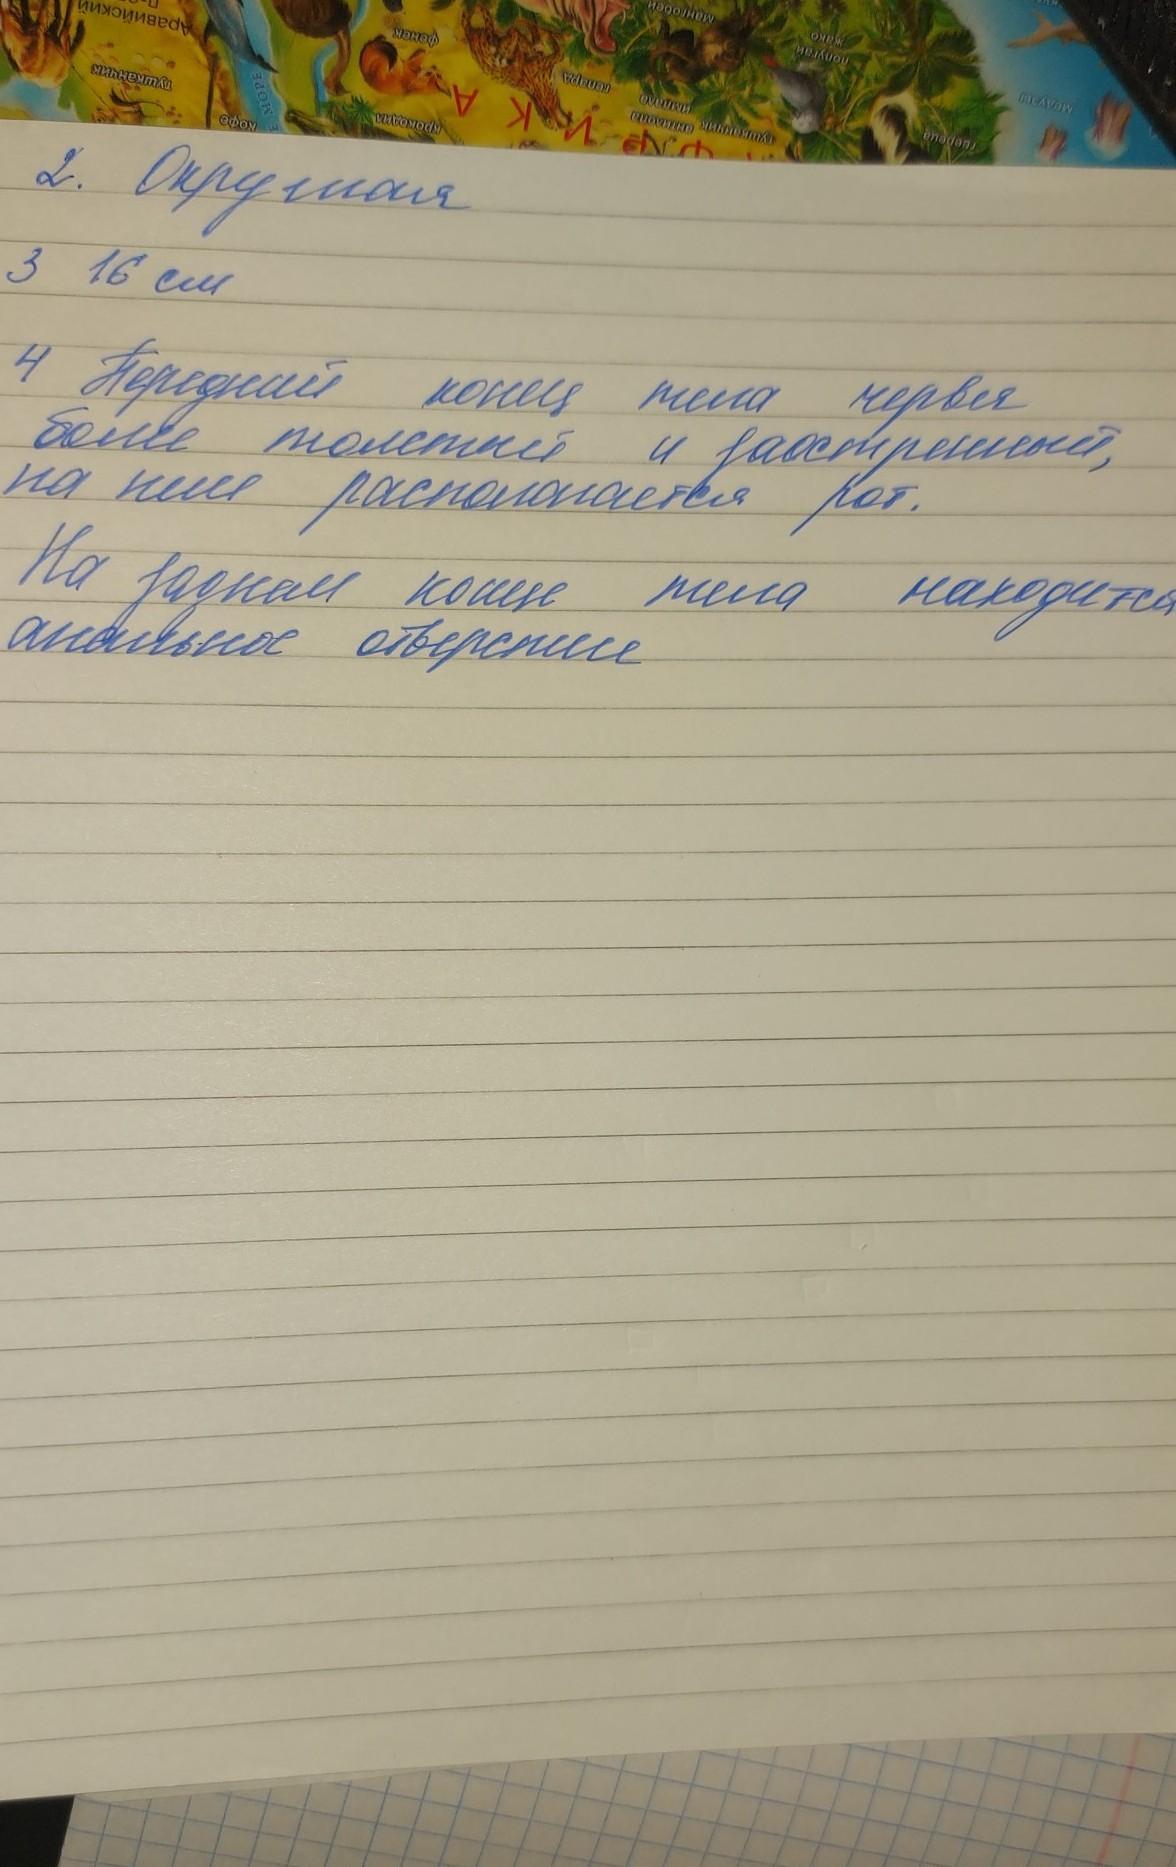 Аравийский
тушканчик
кофе
Е МОРЕ
фенек
крокодил
гепард
мангобей
импала
тушканчик
антилопа
жако
попугай
гвереца
медузы
АФРИКА
2. Округлая
3 16 см
4 Передний конец тела червя
более толстый и заостренный,
на нем располагается рот.
На заднем конце тела находится
анальное отверстие